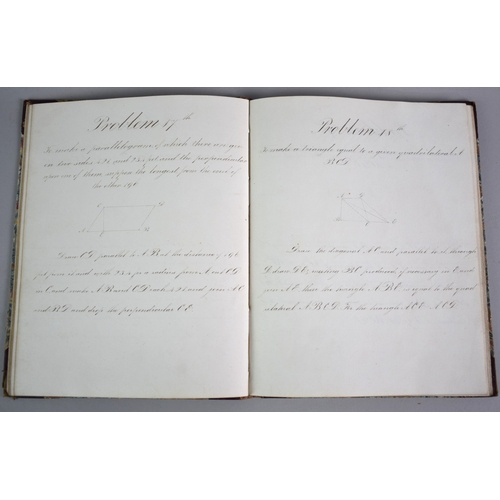 Problem 17th
To make a parallelogram of which there are given
two sides and feet and the perpendicular
upon one of them suppose the longest from the end of
the other
C D
A B
Draw CD parallel to AB at the distance of
feet from it and with for a radius from A cut CD
in C and make AB and CD each and join AC
and BD and drop the perpendicular
Problem 18th
To make a triangle equal to a given quadrilateral A
BCD
Draw the diagonal AC and parallel to it through
D draw DE, meeting BC produced if necessary in E and
join AE then the triangle ABE is equal to the quad
rilateral ABCD. For the triangle ACE = ACD